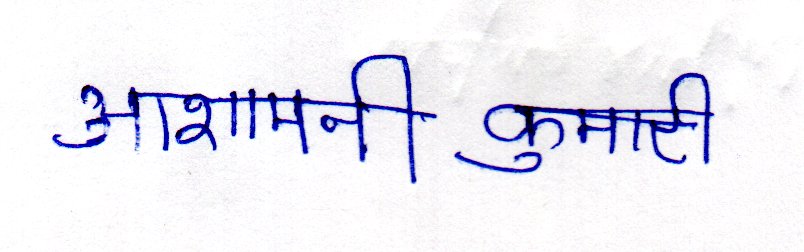 आशामनी कुमारी